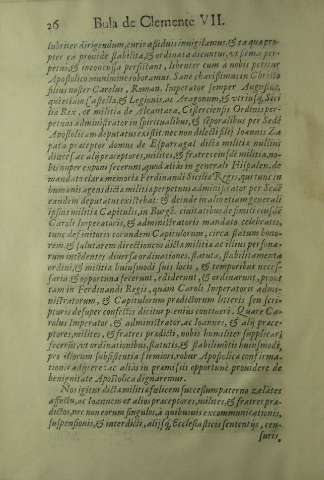 26 Bula de Clemente VII.
lubriter dirigendum, curis assiduis invigilamus, & ea quæ propter
ea provide stabilita, & ordinata dicuntur, ut semper
petuò, & inconcussa persistant, libenter cum à nobis petitur
Apostolico munimine roboramus. Sane charissimus in Christo
filius noster Carolus, Roman. Imperator semper Augustus,
qui etiam Castellæ, & Legionis, ac Aragonum, & utriusq; Sici
liæ Rex, et militiæ de Alcantara, Cisterciensis Ordinis per-
petuus administrator in spiritualibus, & temporalibus per Sedē
Apostolicam deputatus existit: nec non dilecti filij Ioannis Za
pata præceptor domus de Esparragal dictæ militiæ nullius
diœcesis: ac alij præceptores, milites, & fratres eiusdē militiæ, no-
bis nuper exponi fecerunt, quod alias in generali Hispalen. de
mandato claræ memoriæ Ferdinandi Siciliæ Regis, qui tunc in
humanis agens dictæ militiæ perpetuus administrator per Sedē
eandem deputatus existebat: & deinde in alio etiam generali
ipsius militiæ Capitulis, in Burgē. civitatibus de simili eiusdē
Caroli Imperatoris, & administratoris mandato celebratis,
tunc definitores eorundem Capitulorum, circa statum hono-
rem, & salutarem directionem dictæ militiæ ac illius perso-
rum incedentes diversa ordinationes, statuta, & stabilimenta
ordini, & militiæ huiusmodi suis locis, & temporibus neces-
saria & opportuna fecerunt, ediderunt, & ordinarunt, prout
tam in Ferdinandi Regis, quam Caroli Imperatoris admi-
nistratorum, & Capitulorum prædictorum litteris seu scri-
pturis desuper confectis dicitur plenius contineri. Quare Ca-
rolus Imperator, & administrator, ac Ioannes, & alij præce-
ptores, milites, & fratres prædicti, nobis humiliter supplicari
fecerūt, ut ordinationibus, statutis, & stabilimētis huiusmodi,
pro illorum subsistentia firmiori, robur Apostolicæ confirma-
tionis adijcere, ac alias in præmissis opportunè providere de
benignitate Apostolica dignaremur.
Nos igitur dictæ militiæ felicem successum paterno zelātes
affectu, ac Ioannem et alios præceptores, milites, & fratres præ-
dictos, nec non eorum singulos, à quibusvis excommunicationis,
suspensionis, & interdicti, alijsq; Ecclesiasticis sententijs, cen-
suris,